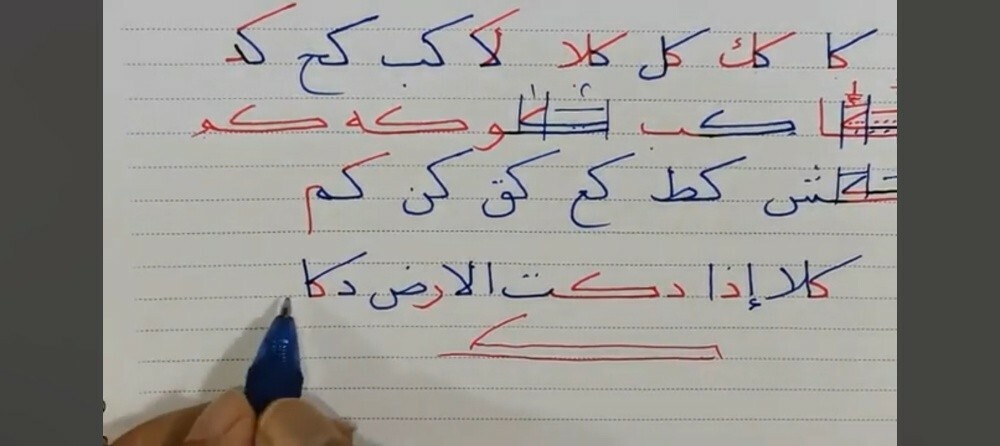 كا كك كل كلا لا كب كح كد
كب كو كه كم
كش كط كع كق كن كم
كلا إذا دكت الارض دكا